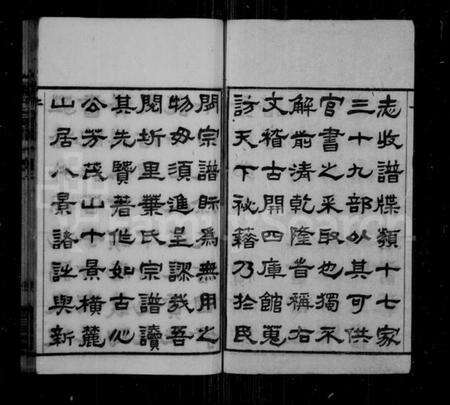 志收譜牒類十七家
三十九部以其可供
官書之采取也獨不
解前清乾隆昔稱右
文稽古開四庫館蒐
訪天下秘籍乃於民
間宗譜眎為無用之
物毋須進呈謬哉吾
閱圻里葉氏宗譜讀
其先賢著作如古心
公芳茂山十景橫麓
山居八景諸詠與新